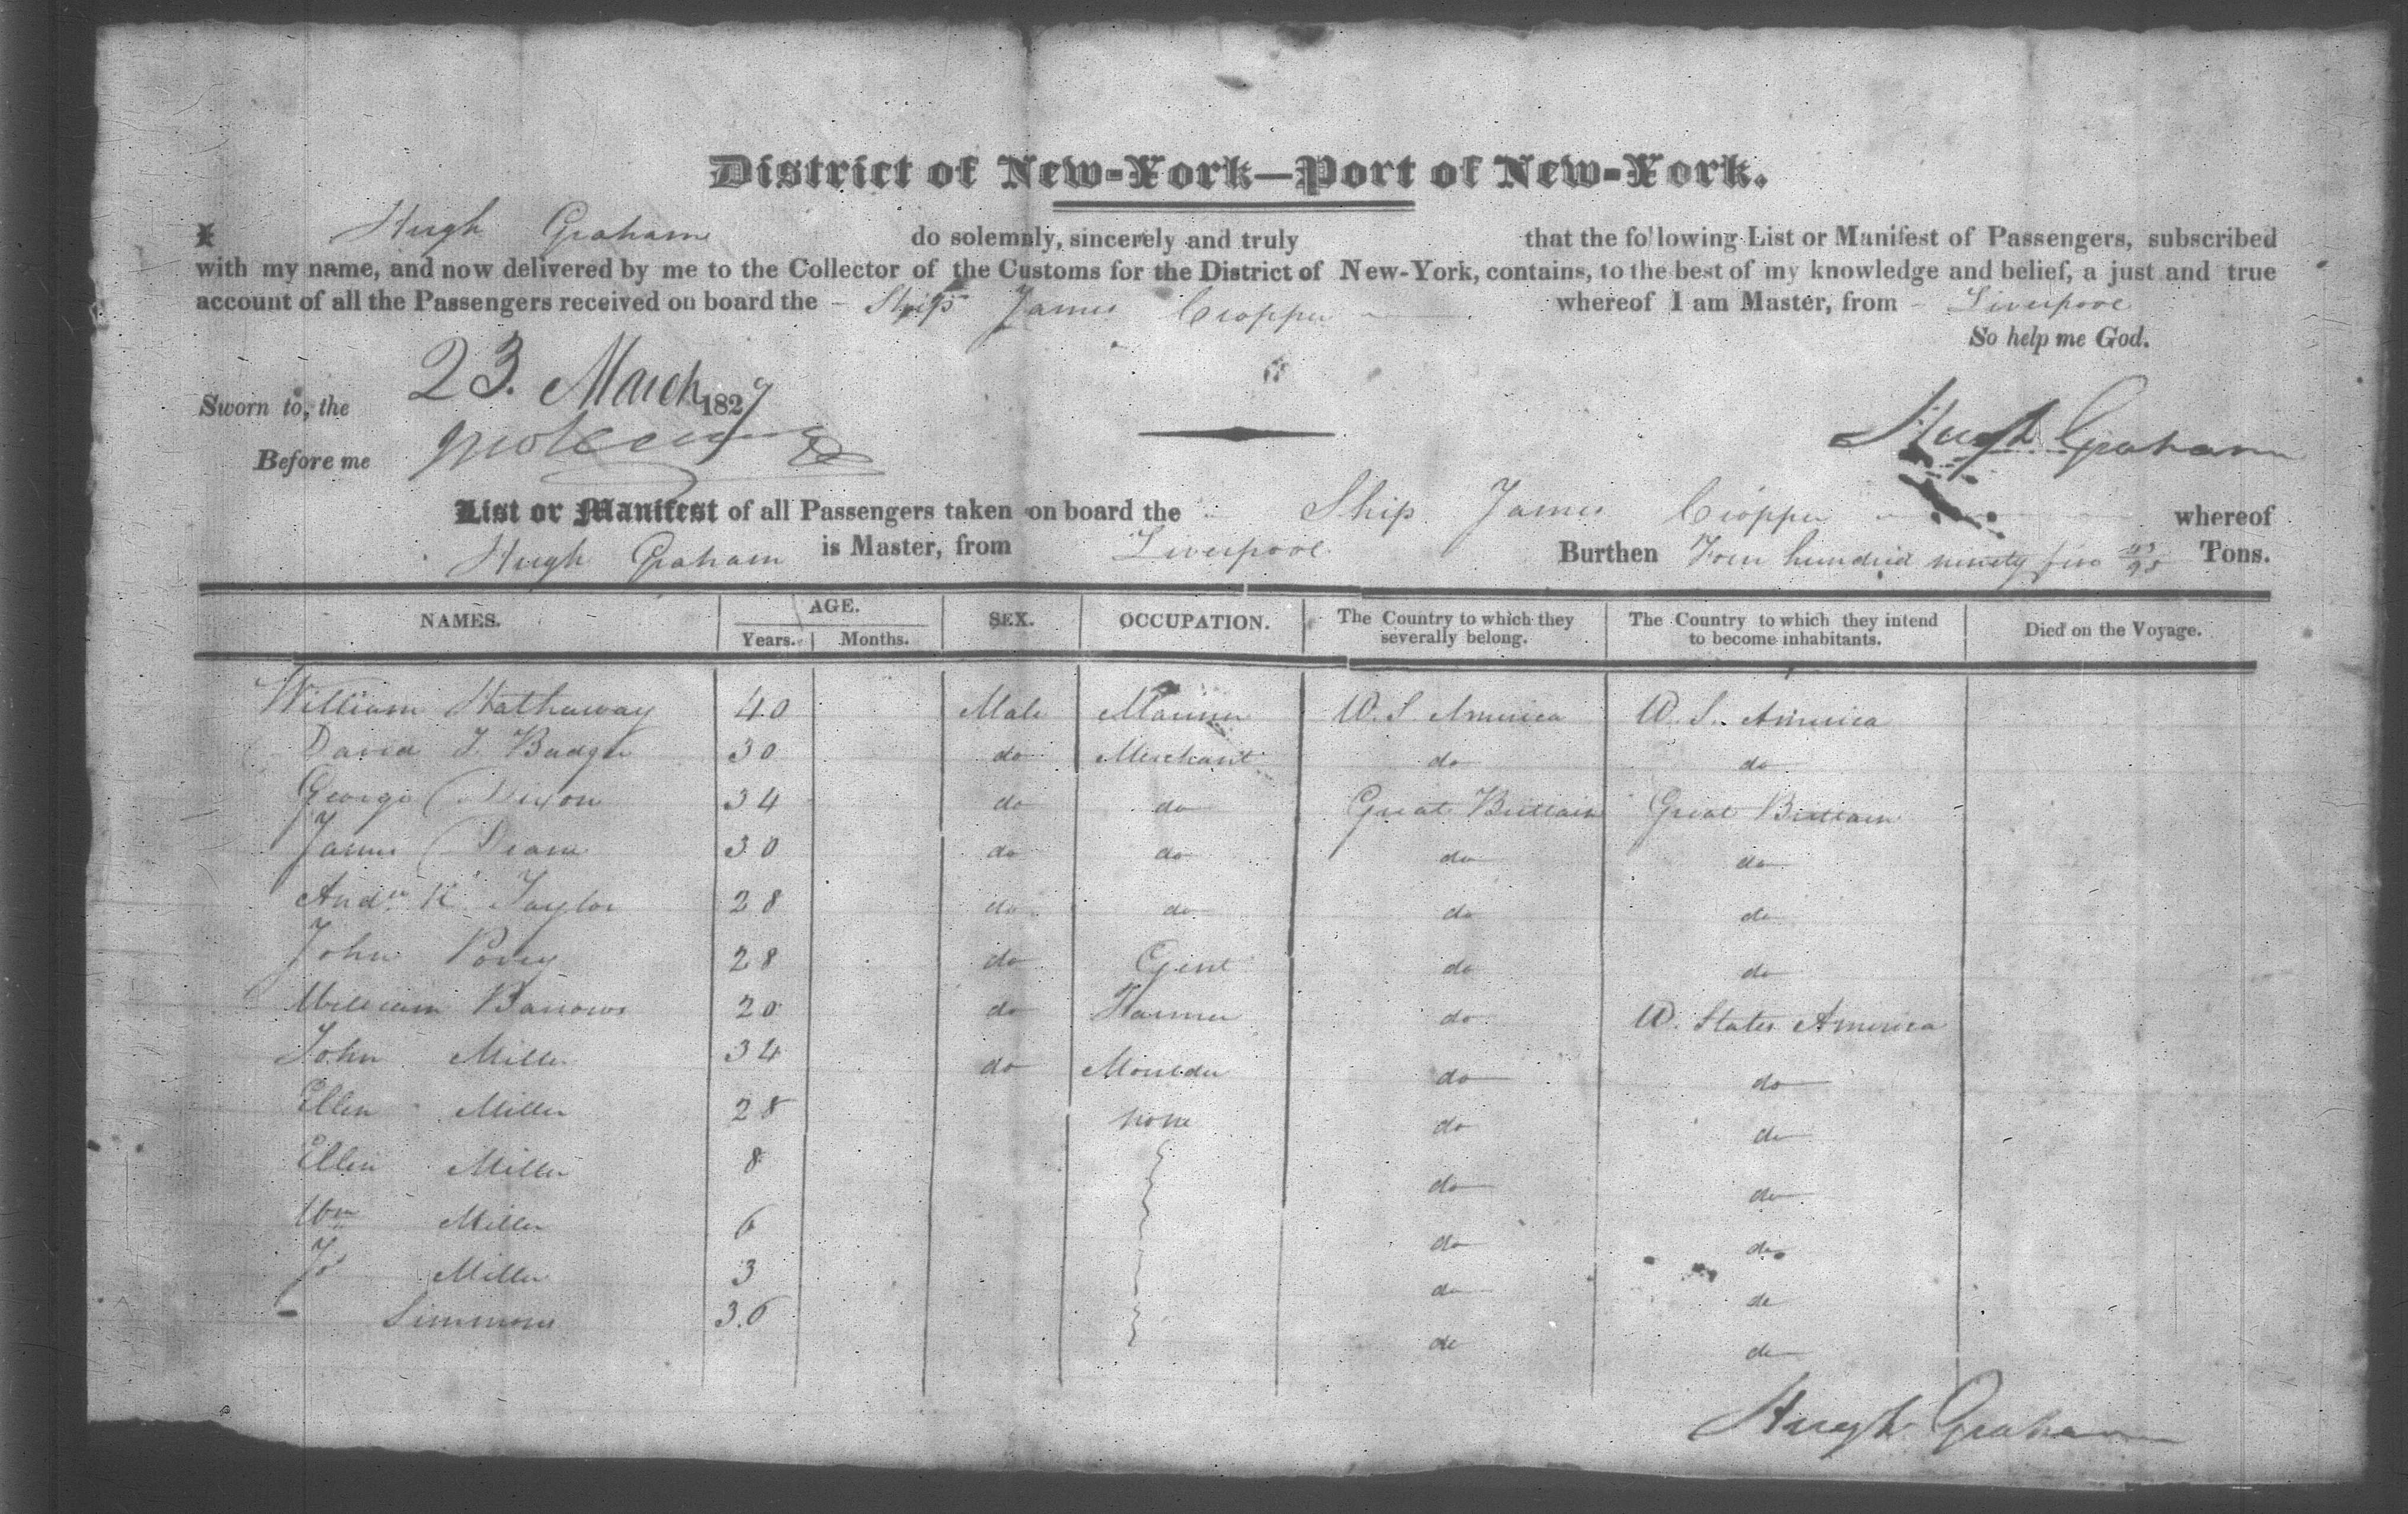 District of New-York—Port of New-York.
I Hugh Graham do solemnly, sincerely and truly that the following List or Manifest of Passengers, subscribed
with my name, and now delivered by me to the Collector of the Customs for the District of New-York, contains, to the best of my knowledge and belief, a just and true
account of all the Passengers received on board the Ship James Cropper whereof I am Master, from Liverpool
So help me God.
Sworn to, the 23. March 1827
Hugh Graham
Before me
List or Manifest of all Passengers taken on board the Ship James Cropper whereof
Hugh Graham is Master, from Liverpool Burthen Four hundred ninety five 43/95 Tons.
NAMES. AGE. Years. Months. SEX. OCCUPATION. The Country to which they severally belong. The Country to which they intend to become inhabitants. Died on the Voyage.
William Hathaway 40 Male Mariner U. S. America U. S. America
David T Badger 30 do Merchant do do
George Dixon 34 do do Great Brittain Great Brittain
James Deane 30 do do do do
Andw. K. Taylor 28 do do do do
John Povey 28 do Gent do do
William Barrows 20 do Farmer do U. States America
John Miller 34 do Moulder do do
Ellen Miller 28 none do do
Ellen Miller 8 do do
Wm Miller 6 do do
Jo Miller 3 do do
Simmons 36 do do
Hugh Graham